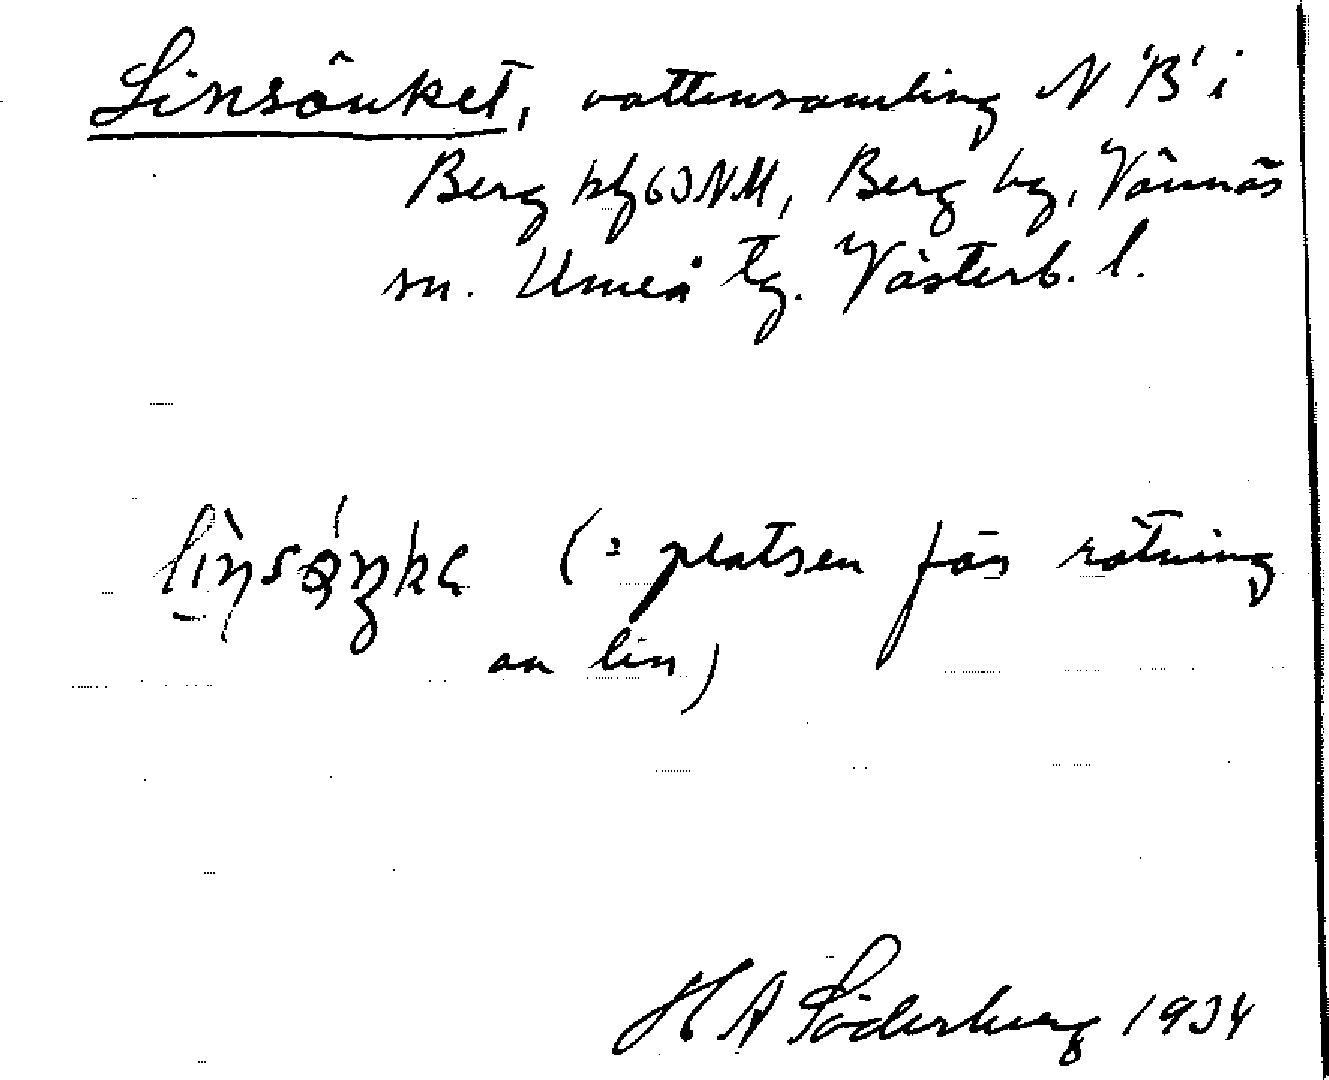 Linsänket, vattensamling N 'B' i
Berg kf63NM, Berg by, Vännäs
sn. Umeå tg. Västerb. l.
(= platsen för rötning
av lin)
H A Söderberg 1934